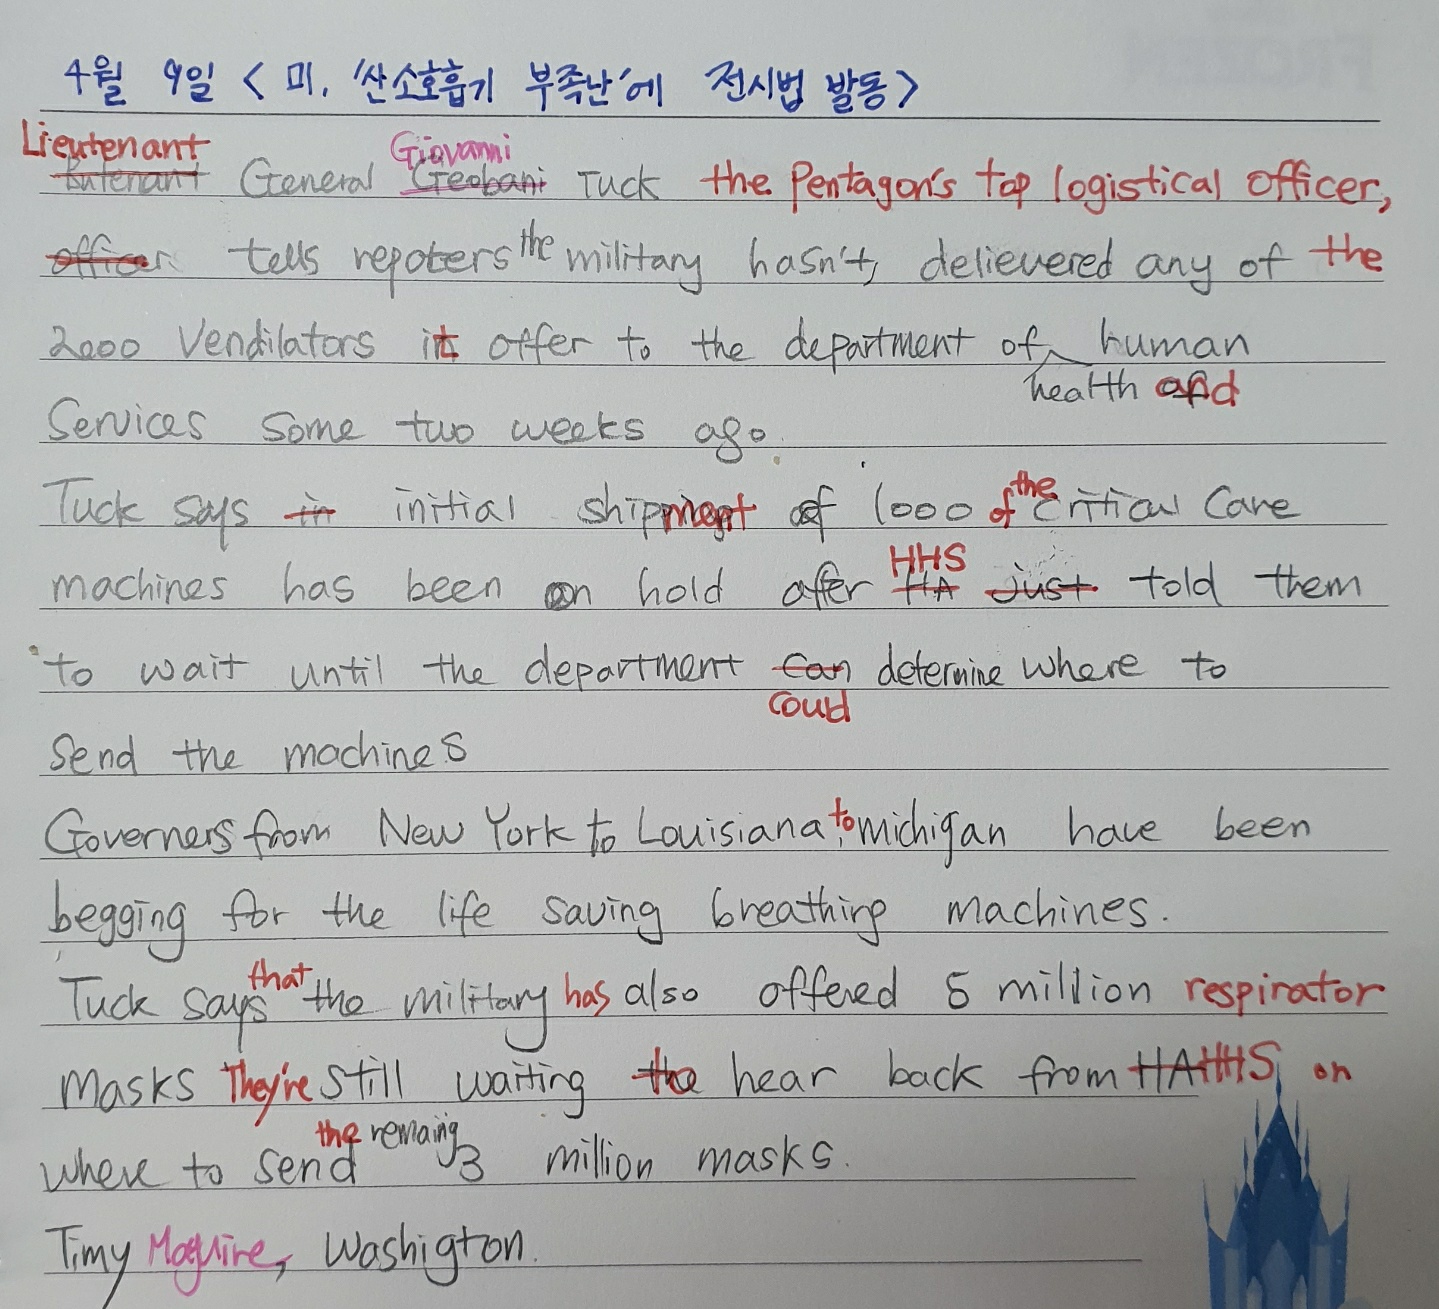 4월 9일 < 미, '산소호흡기 부족난'에 전시법 발동>
Lieutenant Giovanni
Butenant General Geobani Tuck the Pentagon's top logistical officer,
officer tells repoters the military hasn't, delievered any of the
2000 Vendilators it offer to the department of human
health and
Services some two weeks ago.
Tuck says in initial shipment of 1000 of the critical Care
machines has been on hold after HHS HA just told them
to wait until the department can determine where to
could
Send the machines
Governers from New York to Louisiana, to michigan have been
begging for the life saving breathing machines.
Tuck says that the military has also offered 5 million respirator
masks They're still waiting the hear back from HA HHS on
where to send the remaing 3 million masks.
Timy Maguire, Washigton.